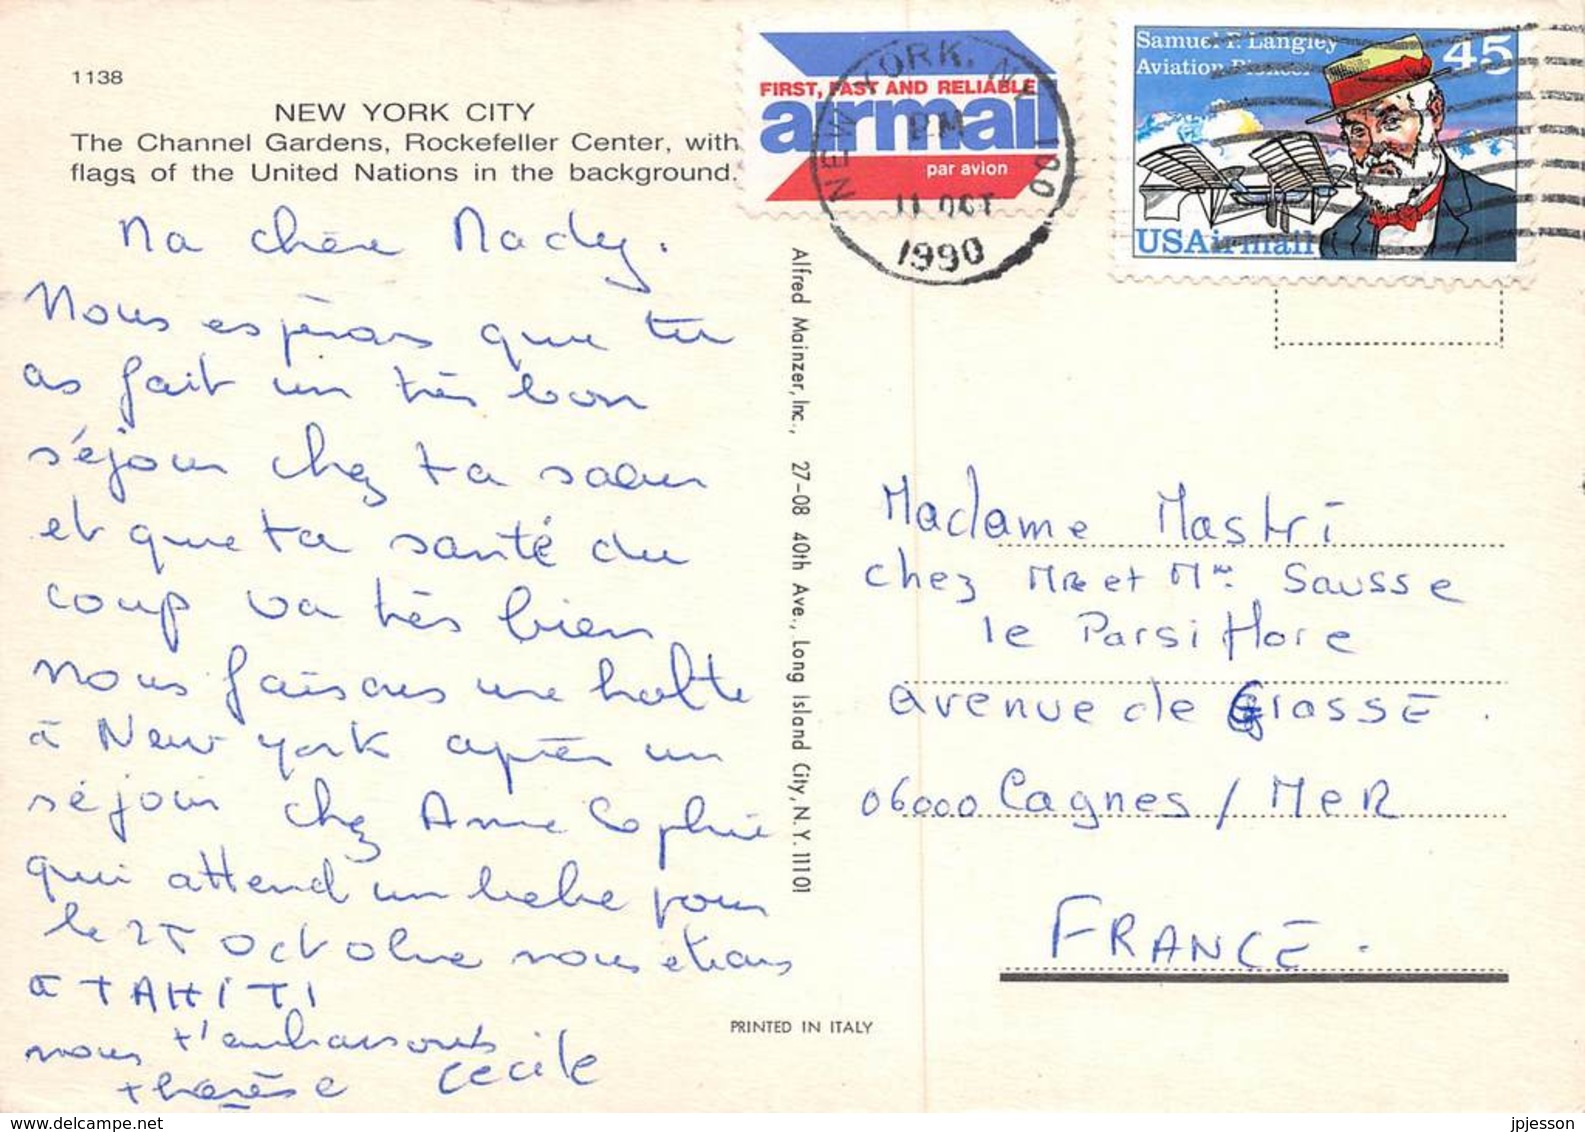 1138
NEW YORK CITY
The Channel Gardens, Rockefeller Center, with
flags of the United Nations in the background.
FIRST, FAST AND RELIABLE
airmail
par avion
NEW YORK, NY 100
PM
11 OCT
1990
Samuel P. Langley
Aviation Pioneer
45
USAirmail
Ma chère Mady.
Nous espérons que tu
as fait un très bon
séjour chez ta sœur
et que ta santé du
coup va très bien
nous faisons une halte
à New york après un
séjour chez Anne Sophie
qui attend un bebe pour
le 25 octobre nous étions
à TAHITI
nous t'embrassons
thérèse Cecile
Alfred Mainzer, Inc., 27-08 40th Ave., Long Island City, N.Y. 11101
PRINTED IN ITALY
Madame Mastri
chez Mr et Mme Sausse
le Parsiflore
avenue de Grasse.
06000 Cagnes / MeR
FRANCE.
jpjesson